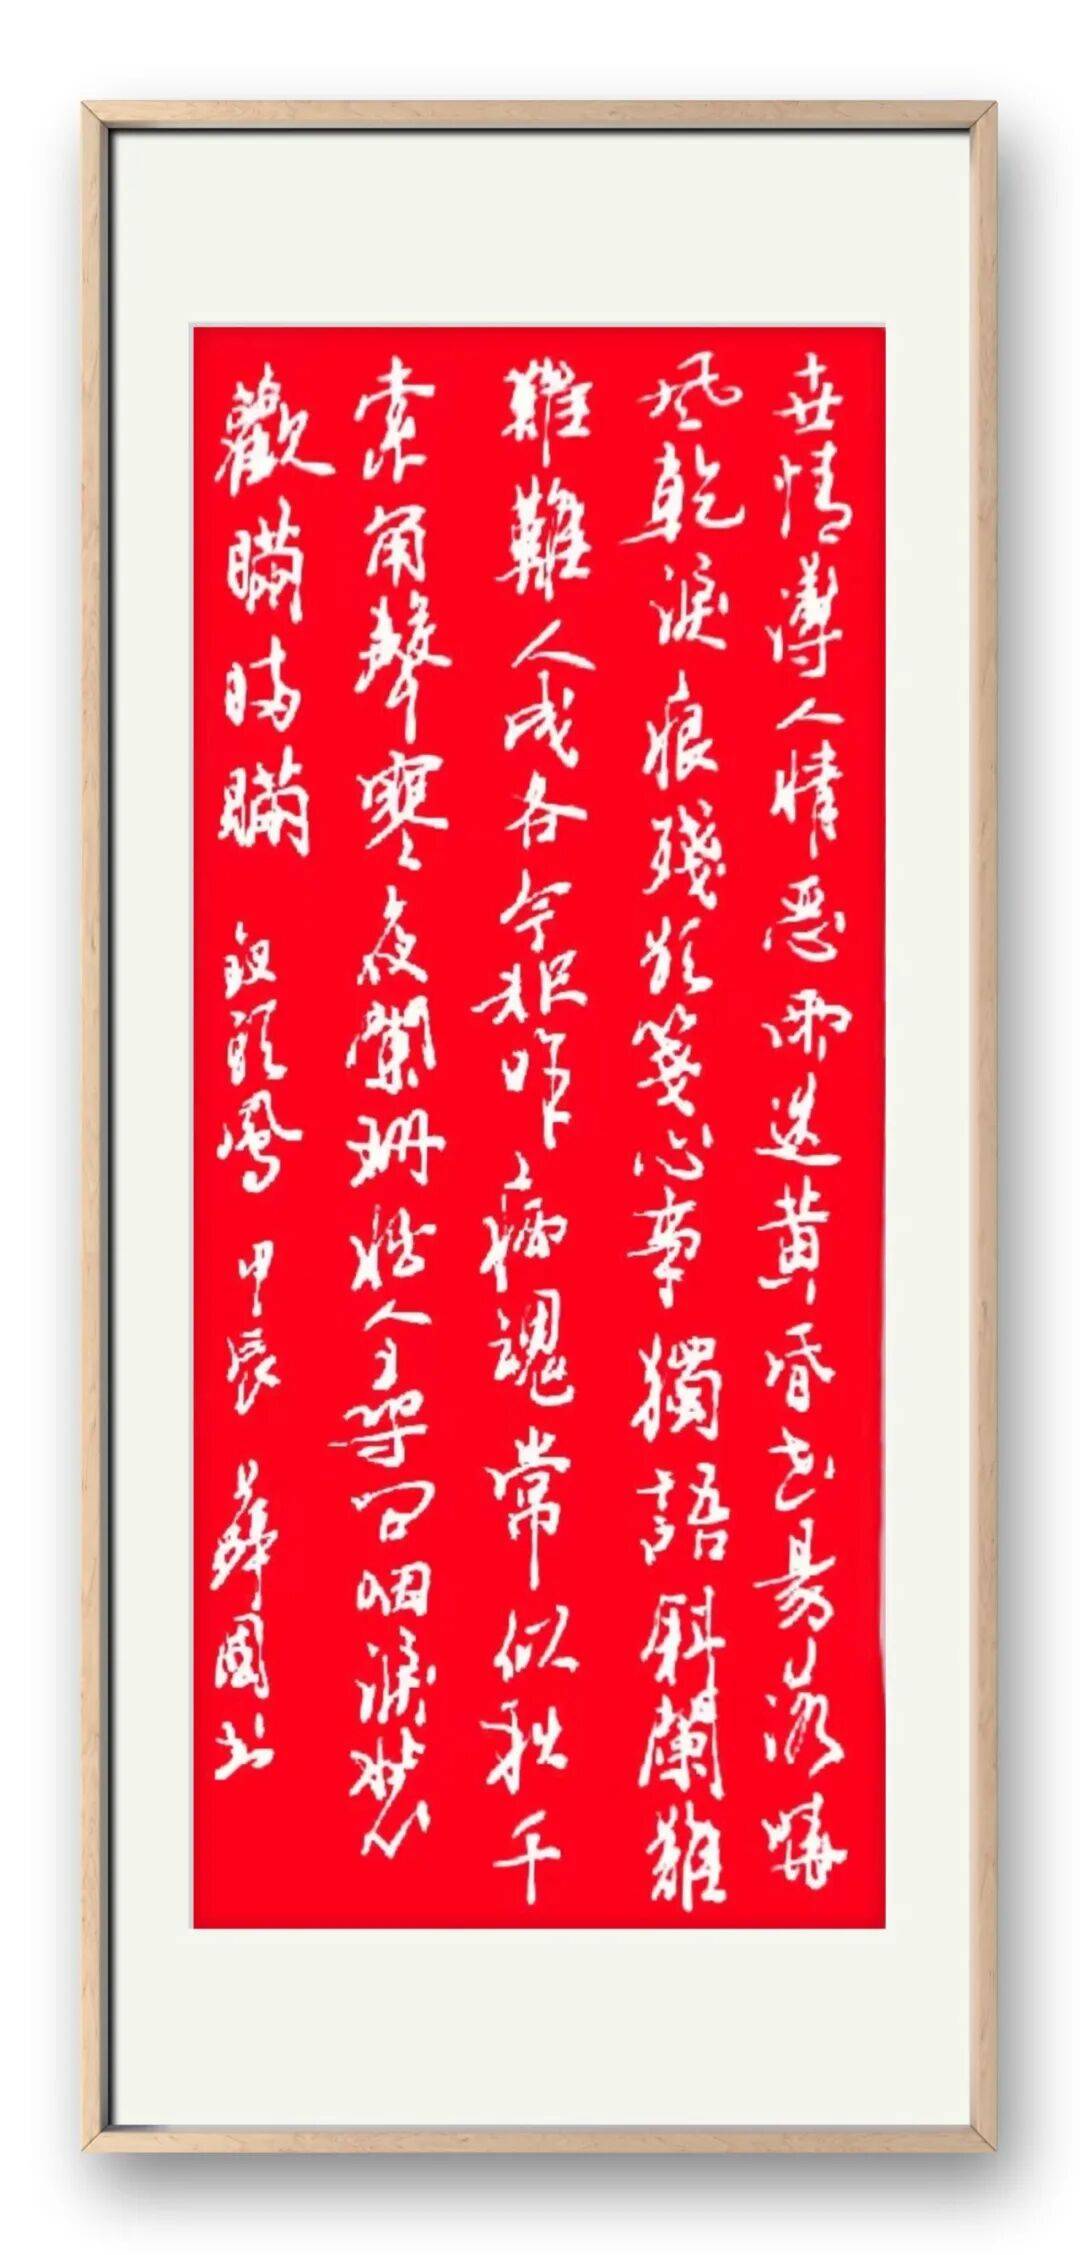 世情薄人情恶雨送黄昏花易落曉
風乾淚痕殘欲箋心事獨語斜闌難
難難人成各今非昨病魂常似秋千
索角聲寒夜闌珊怕人尋問咽淚裝
歡瞞瞞瞞 釵頭鳳 甲辰 國书